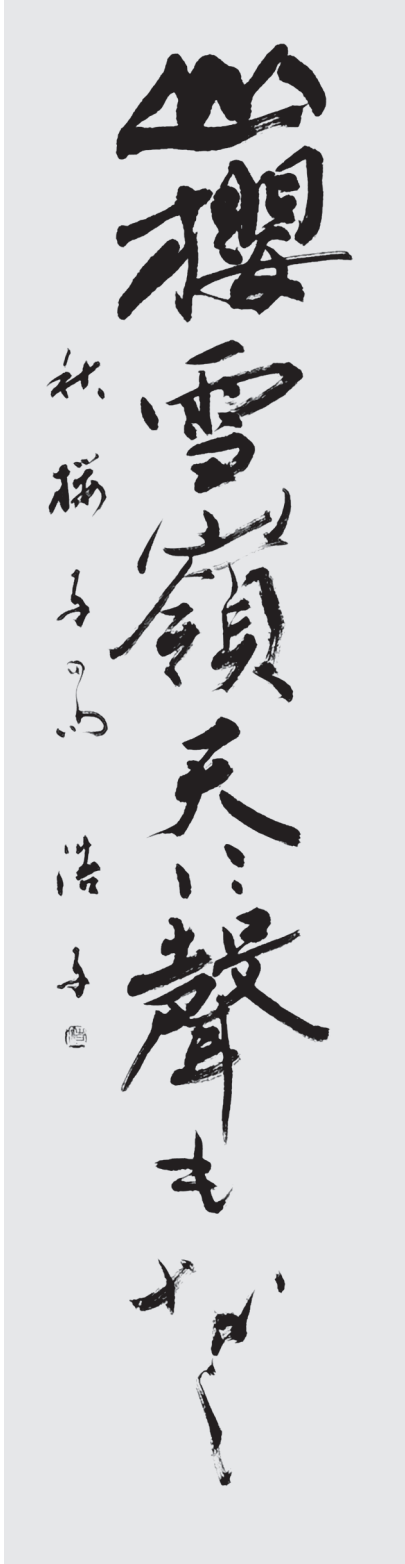 山櫻雪嶺天に聲もなし
秋櫻子の句 浩子